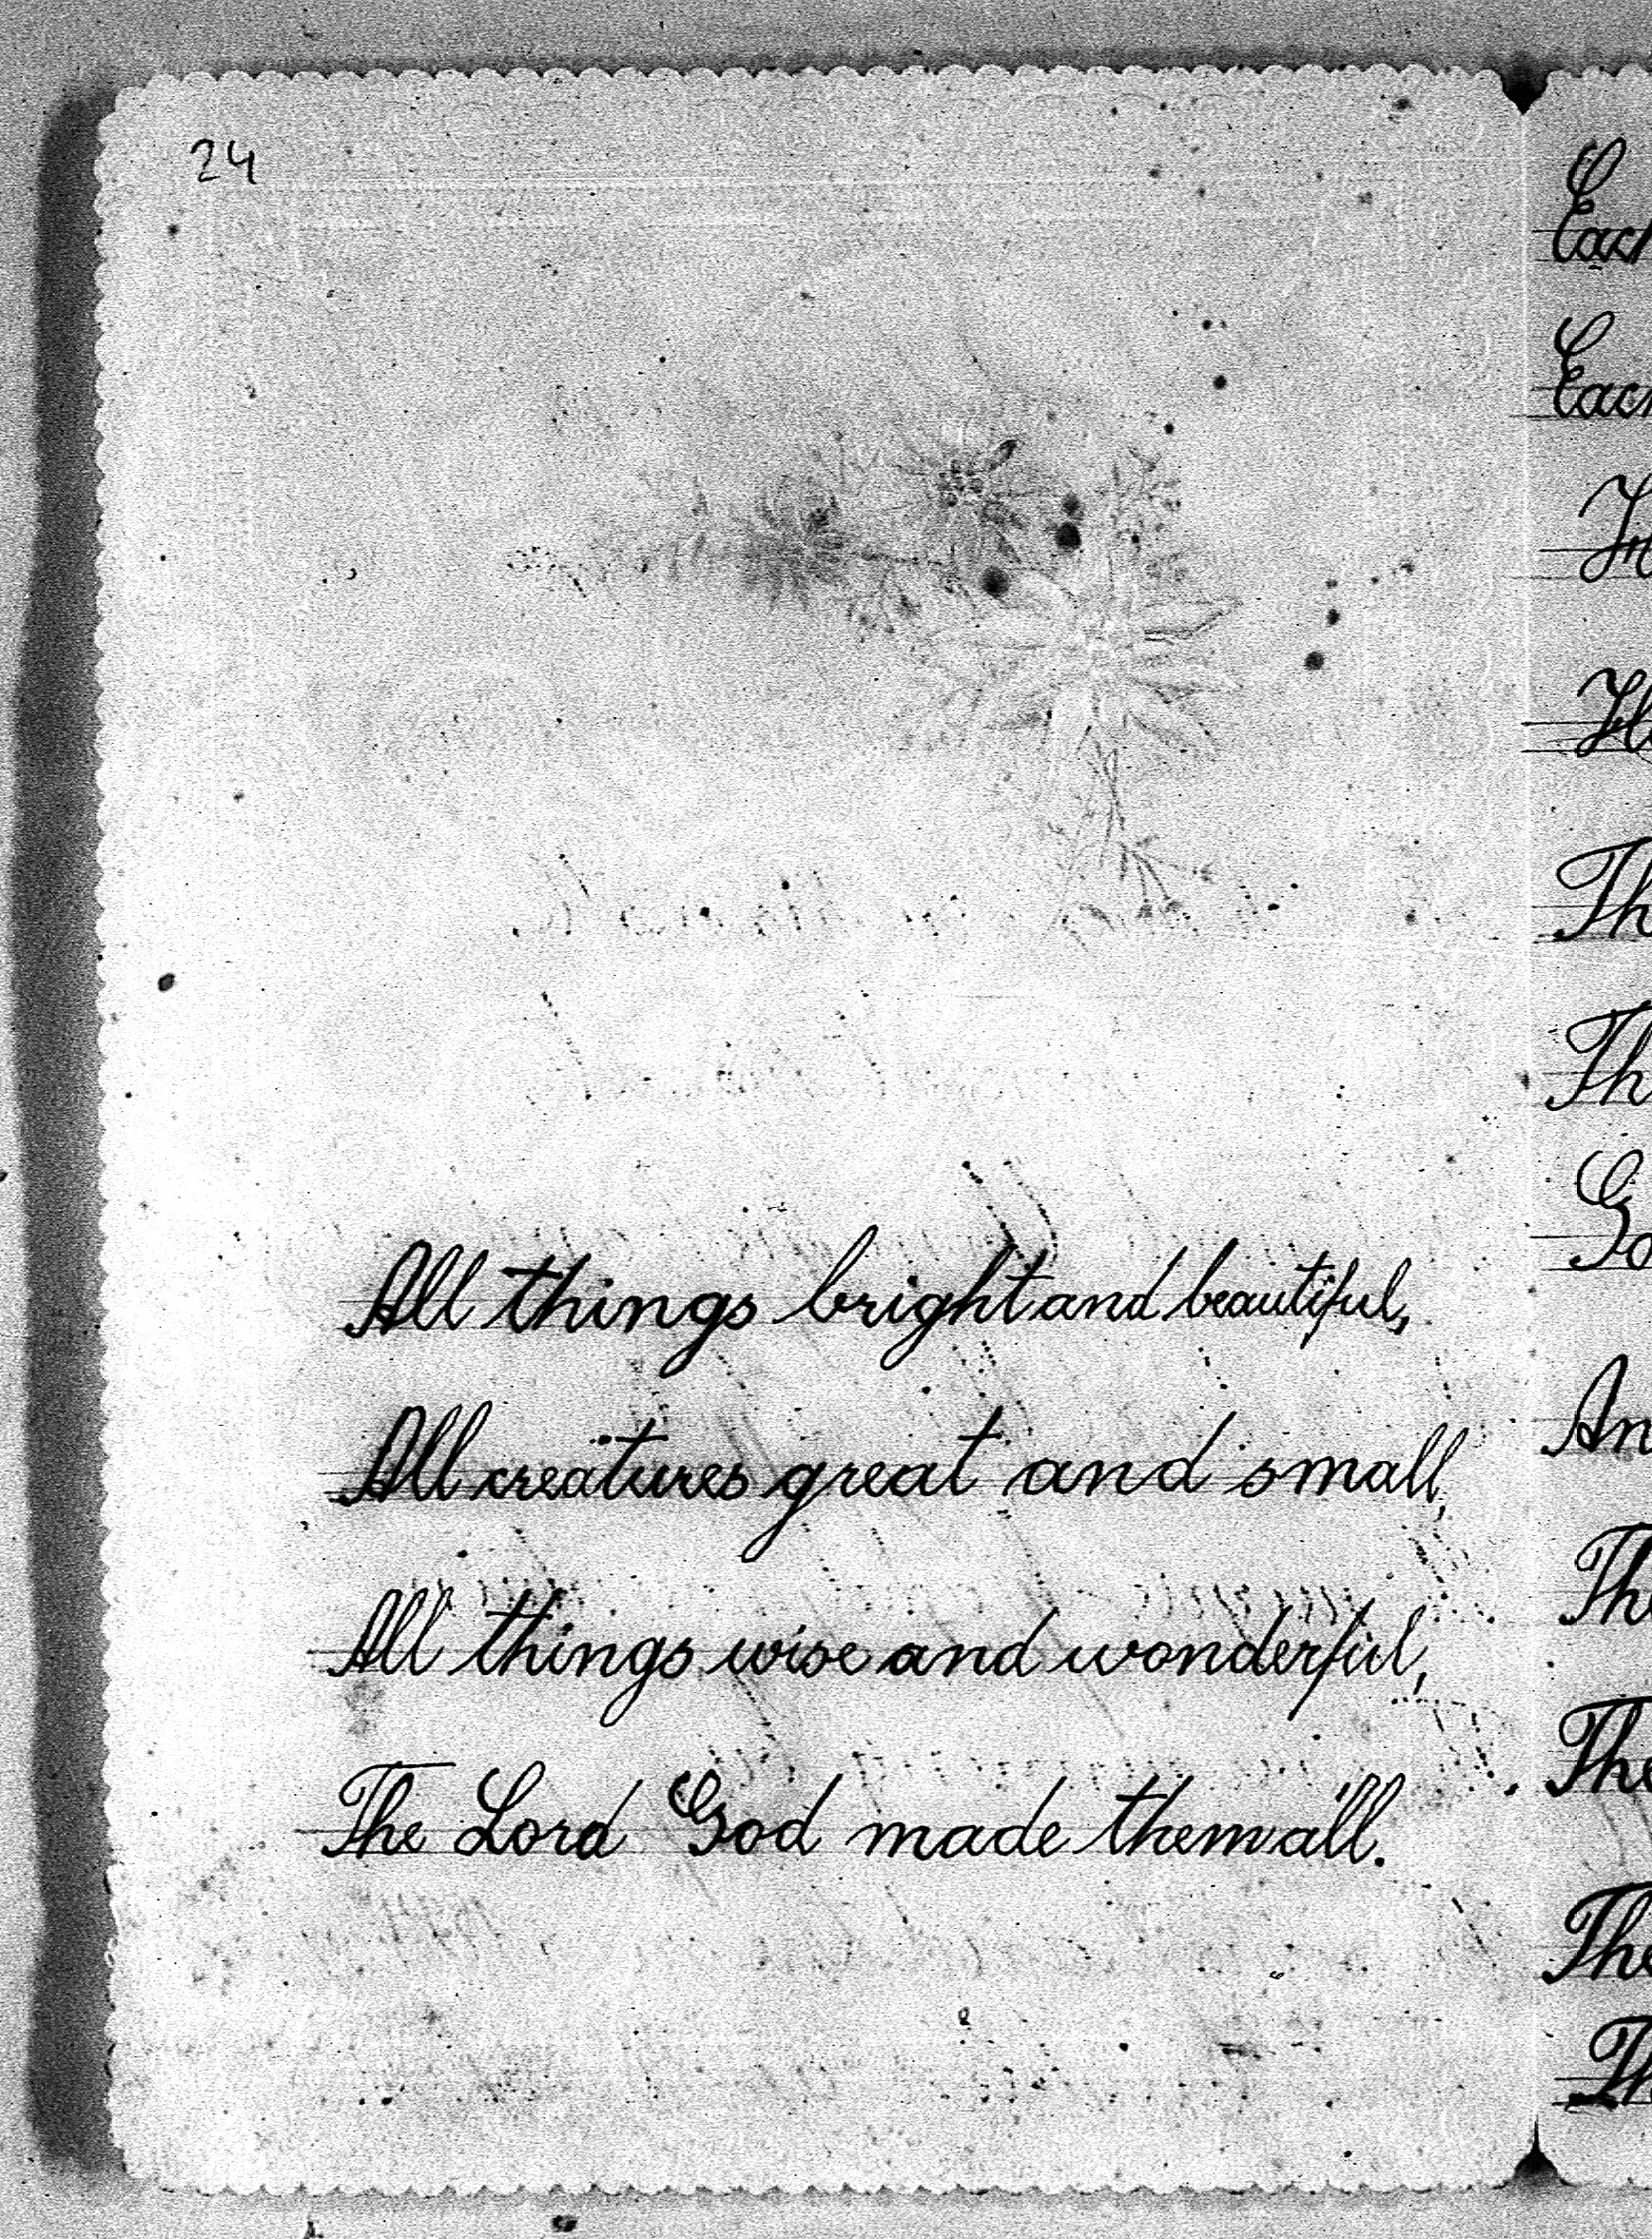 24
All things bright and beautiful,
All creatures great and small,
All things wise and wonderful,
The Lord God made them all.
Each
Each
The
The